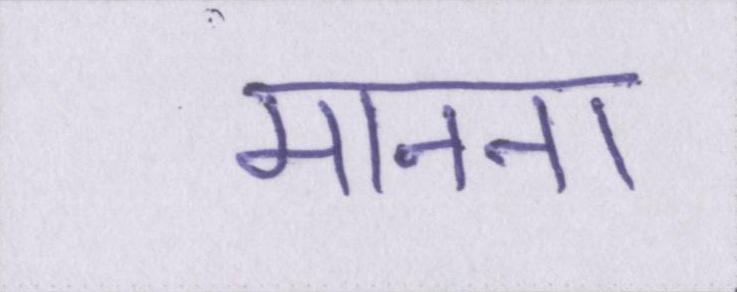 मानना